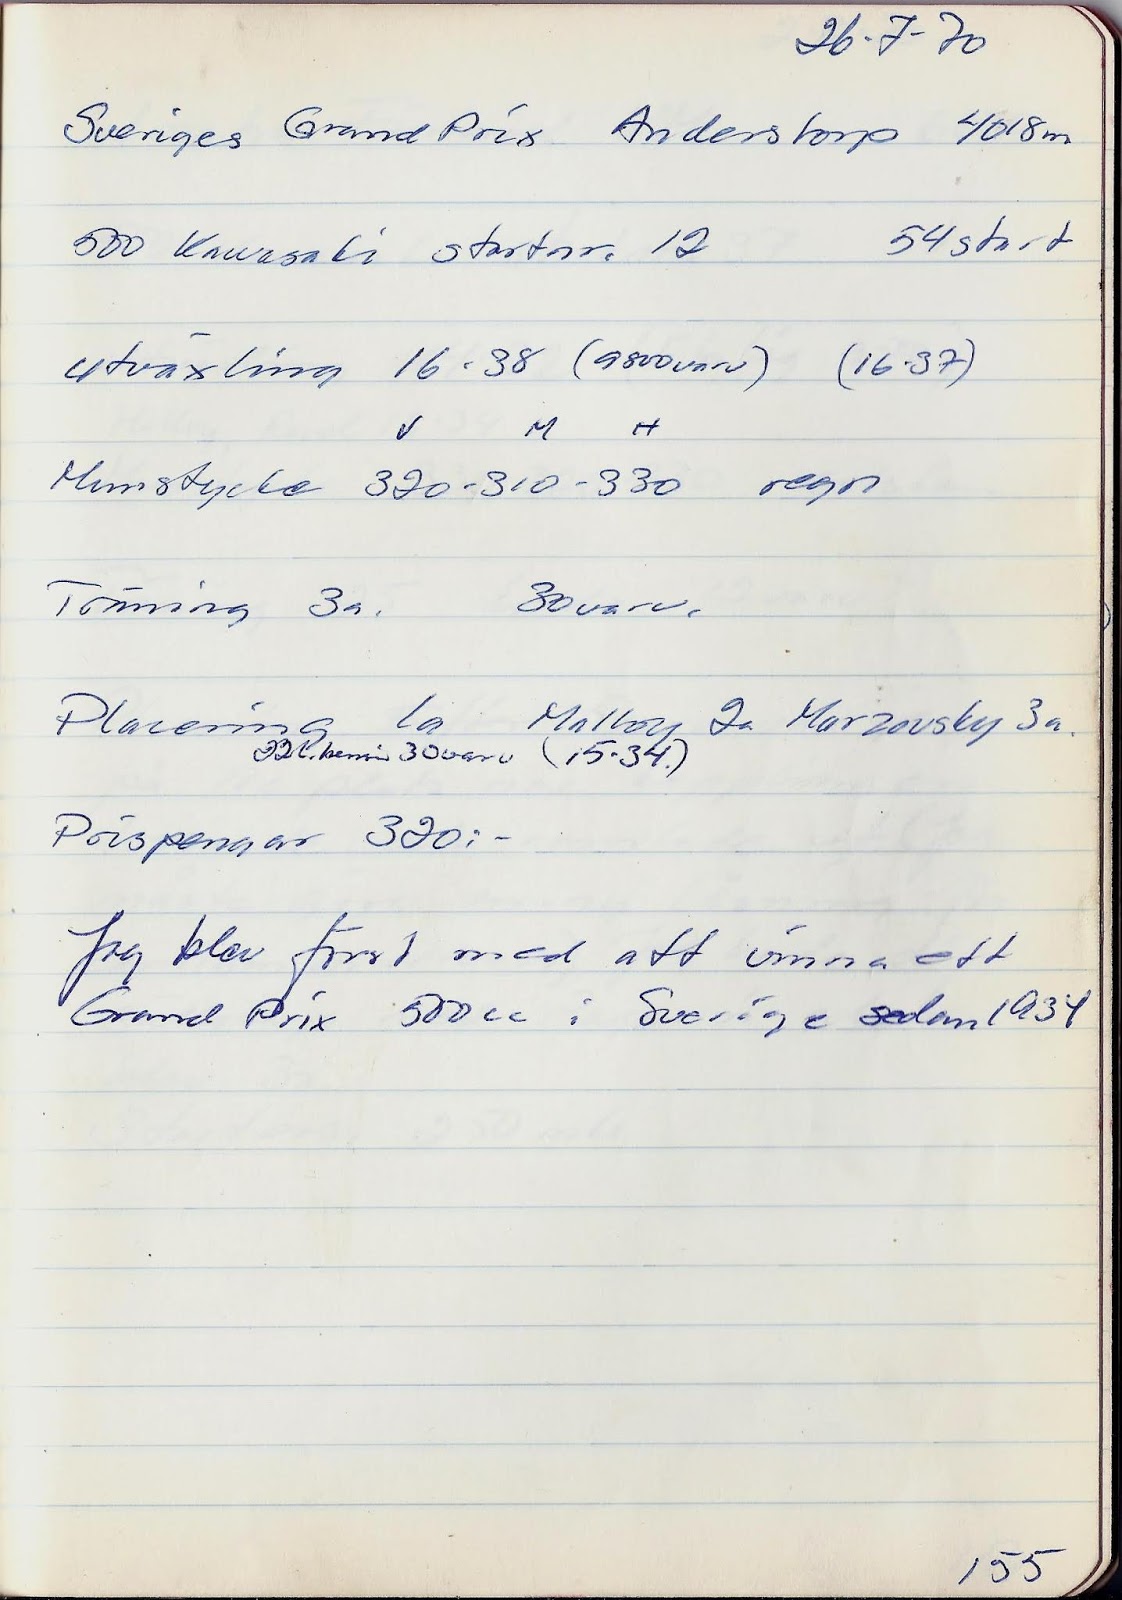 26-7-70
Sveriges Grand Prix Anderstorp 4018m
500 Kawasaki startnr. 12 54 start
utväxling 16-38 (9800varv) (16-37)
V M H
Munstycke 320-310-330 regn
Träning 3a. 30varv.
Placering 1a Molloy 2a Marzovsky 3a.
22l. bensin 30varv (15-34.)
Prispengar 320:-
Jag blev först med att vinna ett
Grand Prix 500cc i Sverige sedan 1934
155